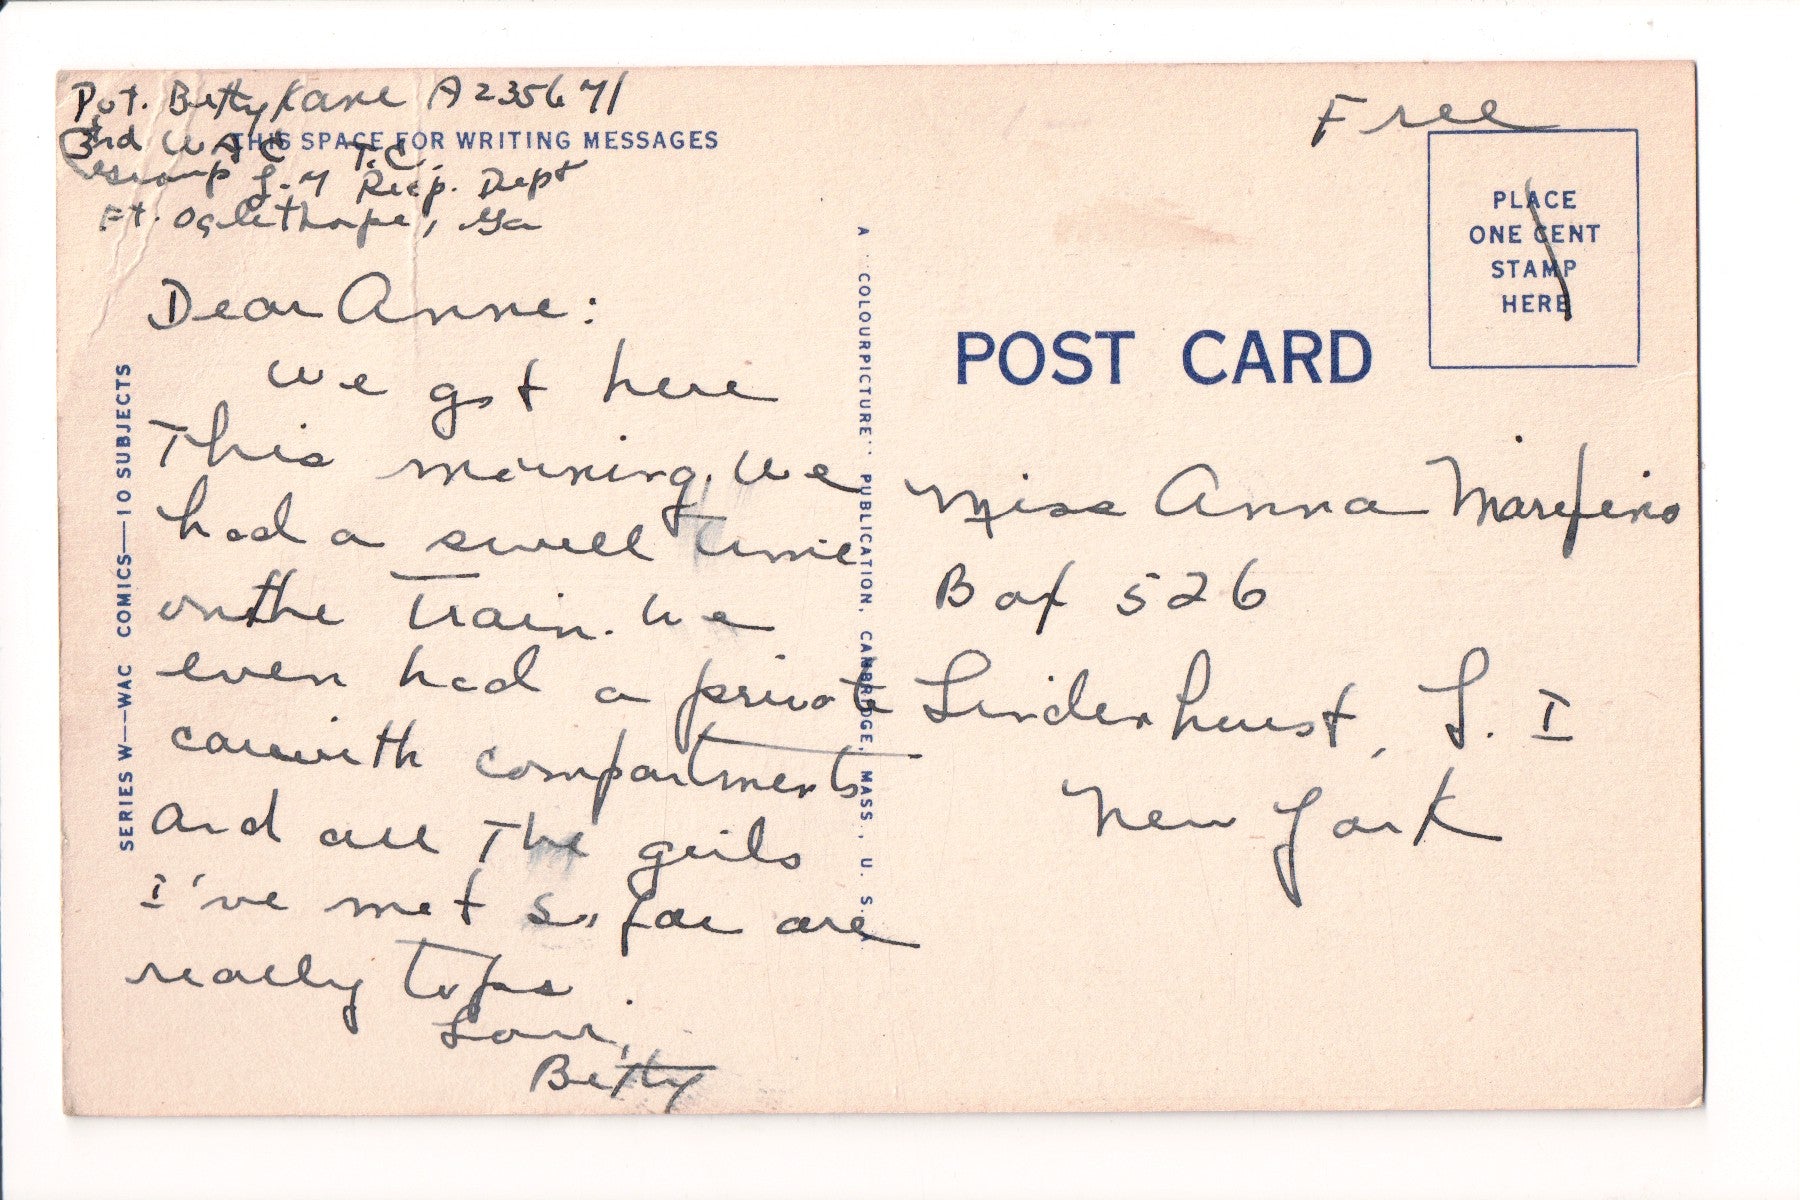 Pvt. Betty Kane A235671
3rd WAC T.C.
Group Recp. Dept
Ft. Oglethorpe, Ga
THIS SPACE FOR WRITING MESSAGES
Dear Anne:
We got here
This morning. We
had a swell time
on the Train. We
even had a private
car with compartments
and all The girls
I've met so far are
really tops.
Love,
Betty
SERIES W—WAC COMICS—10 SUBJECTS
A "COLOURPICTURE" PUBLICATION, CAMBRIDGE, MASS., U. S. A.
Free
PLACE
ONE CENT
STAMP
HERE
POST CARD
Miss Anna
Box 526
Lindenhurst, L. I
New York